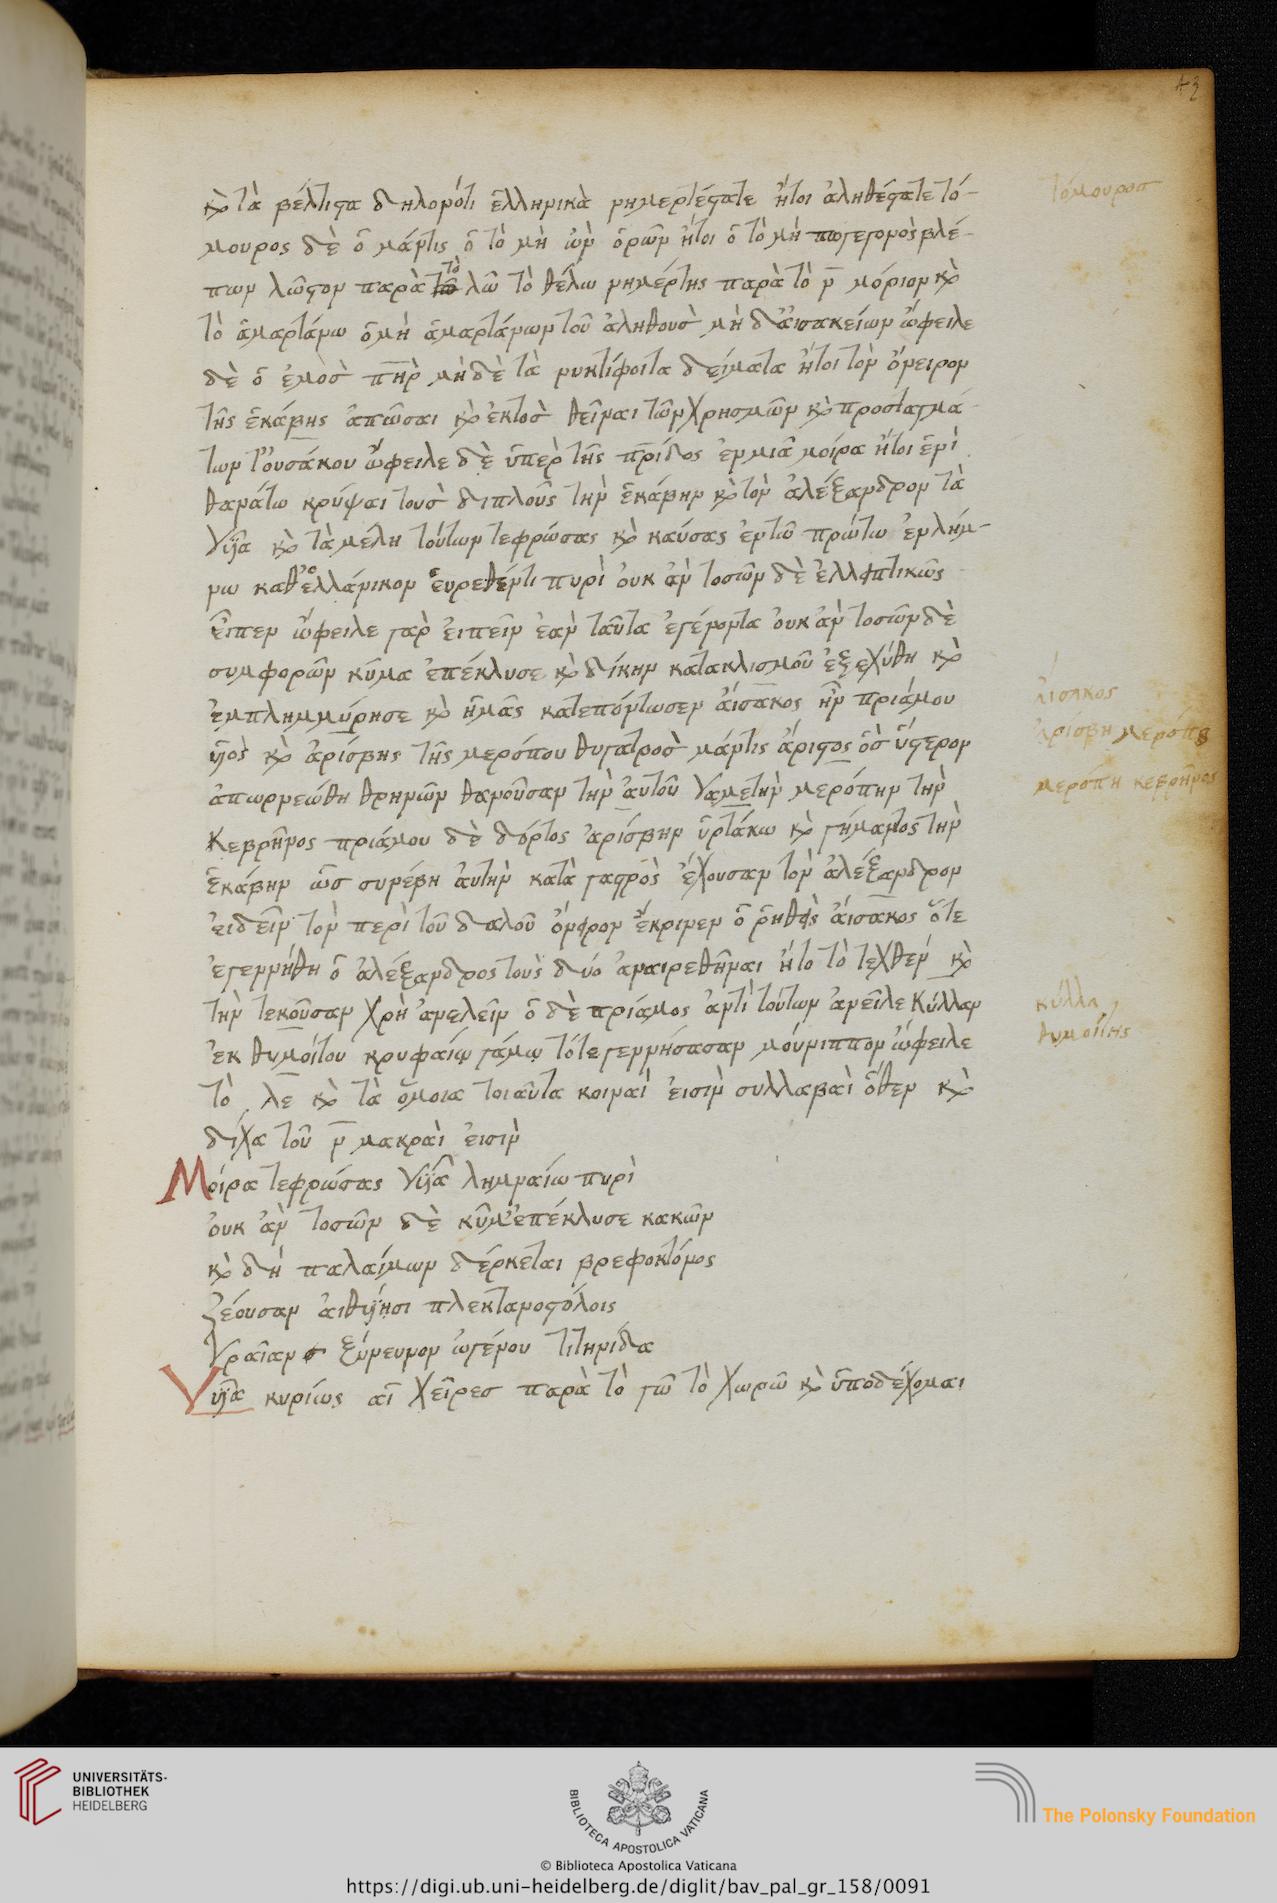 43
καὶ τὰ βέλτιστα δηλονότι ἑλληνικὰ νημερτέστατε ἤτοι ἀληθέστατε τό-
μουρος δὲ ὁ μάντις ὁ τὸ μὴ ὢν ὁρῶν ἤτοι ὁ τὸ μὴ πω γεγονὸς βλέ-
πων λῶστον παρὰ τὸ λῶ τὸ θέλω νημέρτης παρὰ τὸ ν̅ μόριον καὶ
τὸ ἁμαρτάνω ὁ μὴ ἁμαρτάνων τοῦ ἀληθοῦσ μὴ δ' αἰσακείων ὤφειλε
δὲ ὁ ἐμὸσ π̅η̅ρ̅ μὴδὲ τὰ νυκτίφοιτα δείματα ἤτοι τὸν ὄνειρον
τῆς ἑκάβης ἀπῶσαι καὶ ἐκτοσ θεῖναι τῶν χρησμῶν καὶ προσταγμά-
των τ' οὐσάκου ὤφειλε δὲ ὑπὲρ τῆς π̅ρ̅ίδος ἐν μιᾶ μοίρα ἤτοι ἑνὶ
θανάτω κρύψαι τουσ διπλοῦς τὴν ἑκάβην καὶ τὸν ἀλέξανδρον τὰ
γυῖα καὶ τὰ μέλη τούτων τεφρώσας καὶ καύσας ἐν τῶ πρώτω ἐν λήμ-
νω καθ' ἑλλάνικον εὑρεθέντι πυρὶ οὐκ ἀν τοσῶν δὲ ἐλλειπτικῶς
εἶπεν ὤφειλε γὰρ εἰπεῖν ἐὰν ταῦτα ἐγένοντα οὐκ ἀν τοσῶν δὲ
συμφορῶν κῦμα ἐπέκλυσε καὶ δίκην κατακλισμοῦ ἐξεχύθη καὶ
ἐμπλημμύρησε καὶ ἡμᾶς κατεπόντωσεν αἴσακος ἦν πριάμου
υἱὸς καὶ ἀρίσβης τῆς μερόπου θυγατροσ μάντις ἄριστος ὃσ ὕστερον
ἀπωρνεώθη θρηνῶν θανοῦσαν τὴν αὐτοῦ γαμετὴν μερόπην τὴν
Κεβρῆνος πριάμου δὲ δόντος ἀρίσβην ὑρτάκω καὶ γήμαντος τὴν
ἑκάβην ὡσ συνέβη αὐτὴν κατὰ γαστρὸς ἔχουσαν τὸν ἀλέξανδρον
εἰδεῖν τὸν περὶ τοῦ δαλοῦ ὄνειρον ἔκρινεν ὁ ῥηθεὶς αἴσακος ὅτε
ἐγεννήθη ὁ ἀλέξανδρος τοὺς δύο ἀναιρεθῆναι ἤτο τὸ τεχθὲν καὶ
τὴν τεκοῦσαν χρὴ ἀνελεῖν ὁ δὲ πρίαμος ἀντὶ τούτων ἀνεῖλε Κύλλαν
ἐκ θυμοίτου κρυφαίω γάμω τότε γεννήσασαν μούνιππον ὤφειλε
τὸ λε καὶ τὰ ὅμοια τοιαῦτα κοιναί εἰσιν συλλαβαὶ ὅθεν καὶ
δίχα τοῦ ν̅ μακραὶ εἰσιν
Μοίρα τεφρώσας γυῖα λημναίω πυρὶ
οὐκ ἀν τοσῶν δὲ κῦμ' ἐπέκλυσε κακῶν
καὶ δὴ παλαίμων δέρκεται βρεφοκτόνος
ζέουσαν αἰθυίησι πλεκτανοστόλοις
γραῖαν ξύνευνον ὠγένου τιτηνίδα
Γυῖα κυρίως αἱ χεῖρεσ παρὰ τὸ γῶ τὸ χωρῶ καὶ ὑποδέχομαι
τόμουροσ
αἴσακος
ἀρίσβη μερόπου
μερόπη κεβρῆνος
κύλλα
θυμοίτης
UNIVERSITÄTS-
BIBLIOTHEK
HEIDELBERG
BIBLIOTECA APOSTOLICA VATICANA
The Polonsky Foundation
© Biblioteca Apostolica Vaticana
https://digi.ub.uni-heidelberg.de/diglit/bav_pal_gr_158/0091